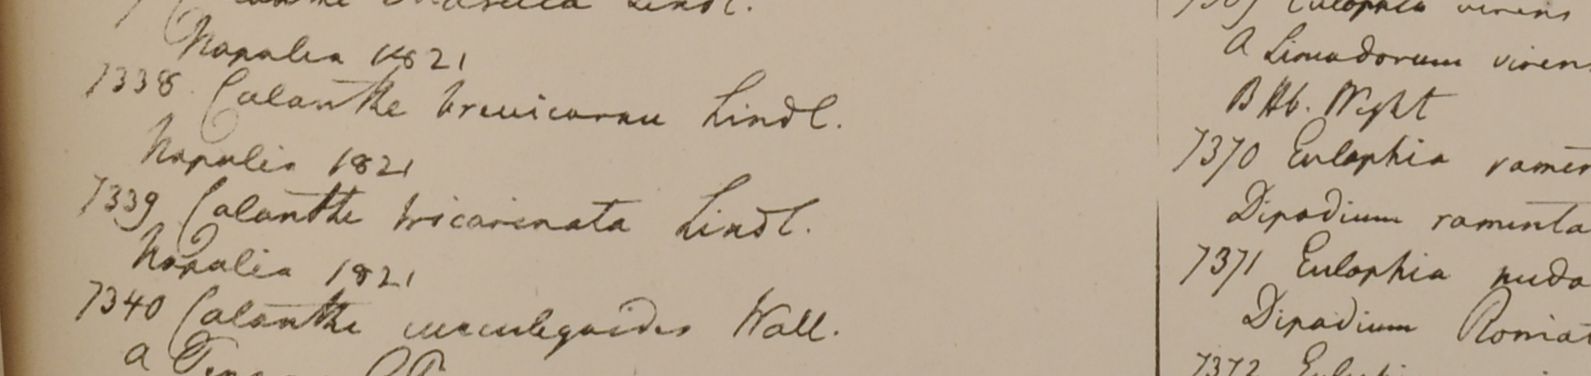 Lindl.
Napalia 1821
7338 Calanthe brevicornu Lindl.
Napalia 1821
7339 Calanthe tricarinata Lindl.
Napalia 1821
7340 Calanthe curculigoides Wall.
a
7369 Eulophia virens
a Limodorum viren
B Hb. Wight
7370 Eulophia ramen
Dipodium ramenta
7371 Eulophia nuda
Dipodium
7372